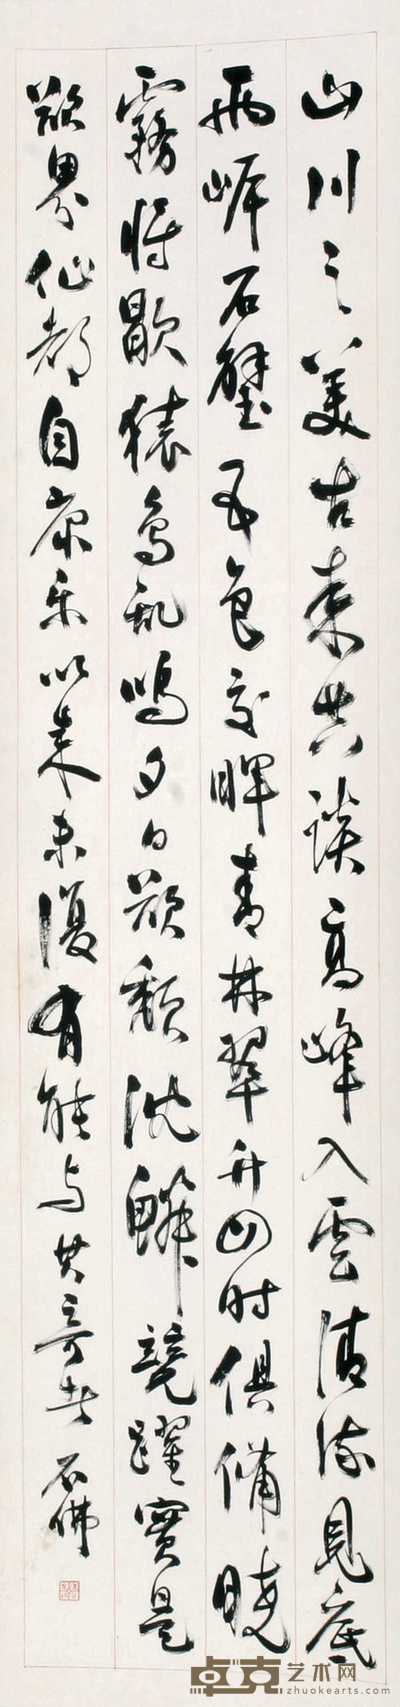 山川之美古來共談高峰入雲清流見底
兩岸石壁五色交暉青林翠竹四時俱備曉
霧將歇猿鳥亂鳴夕日欲頹沈鱗競躍實是
欲界仙都自康樂以來未復有能与其奇者 石佛
卓克艺术网
www.zhuokearts.com